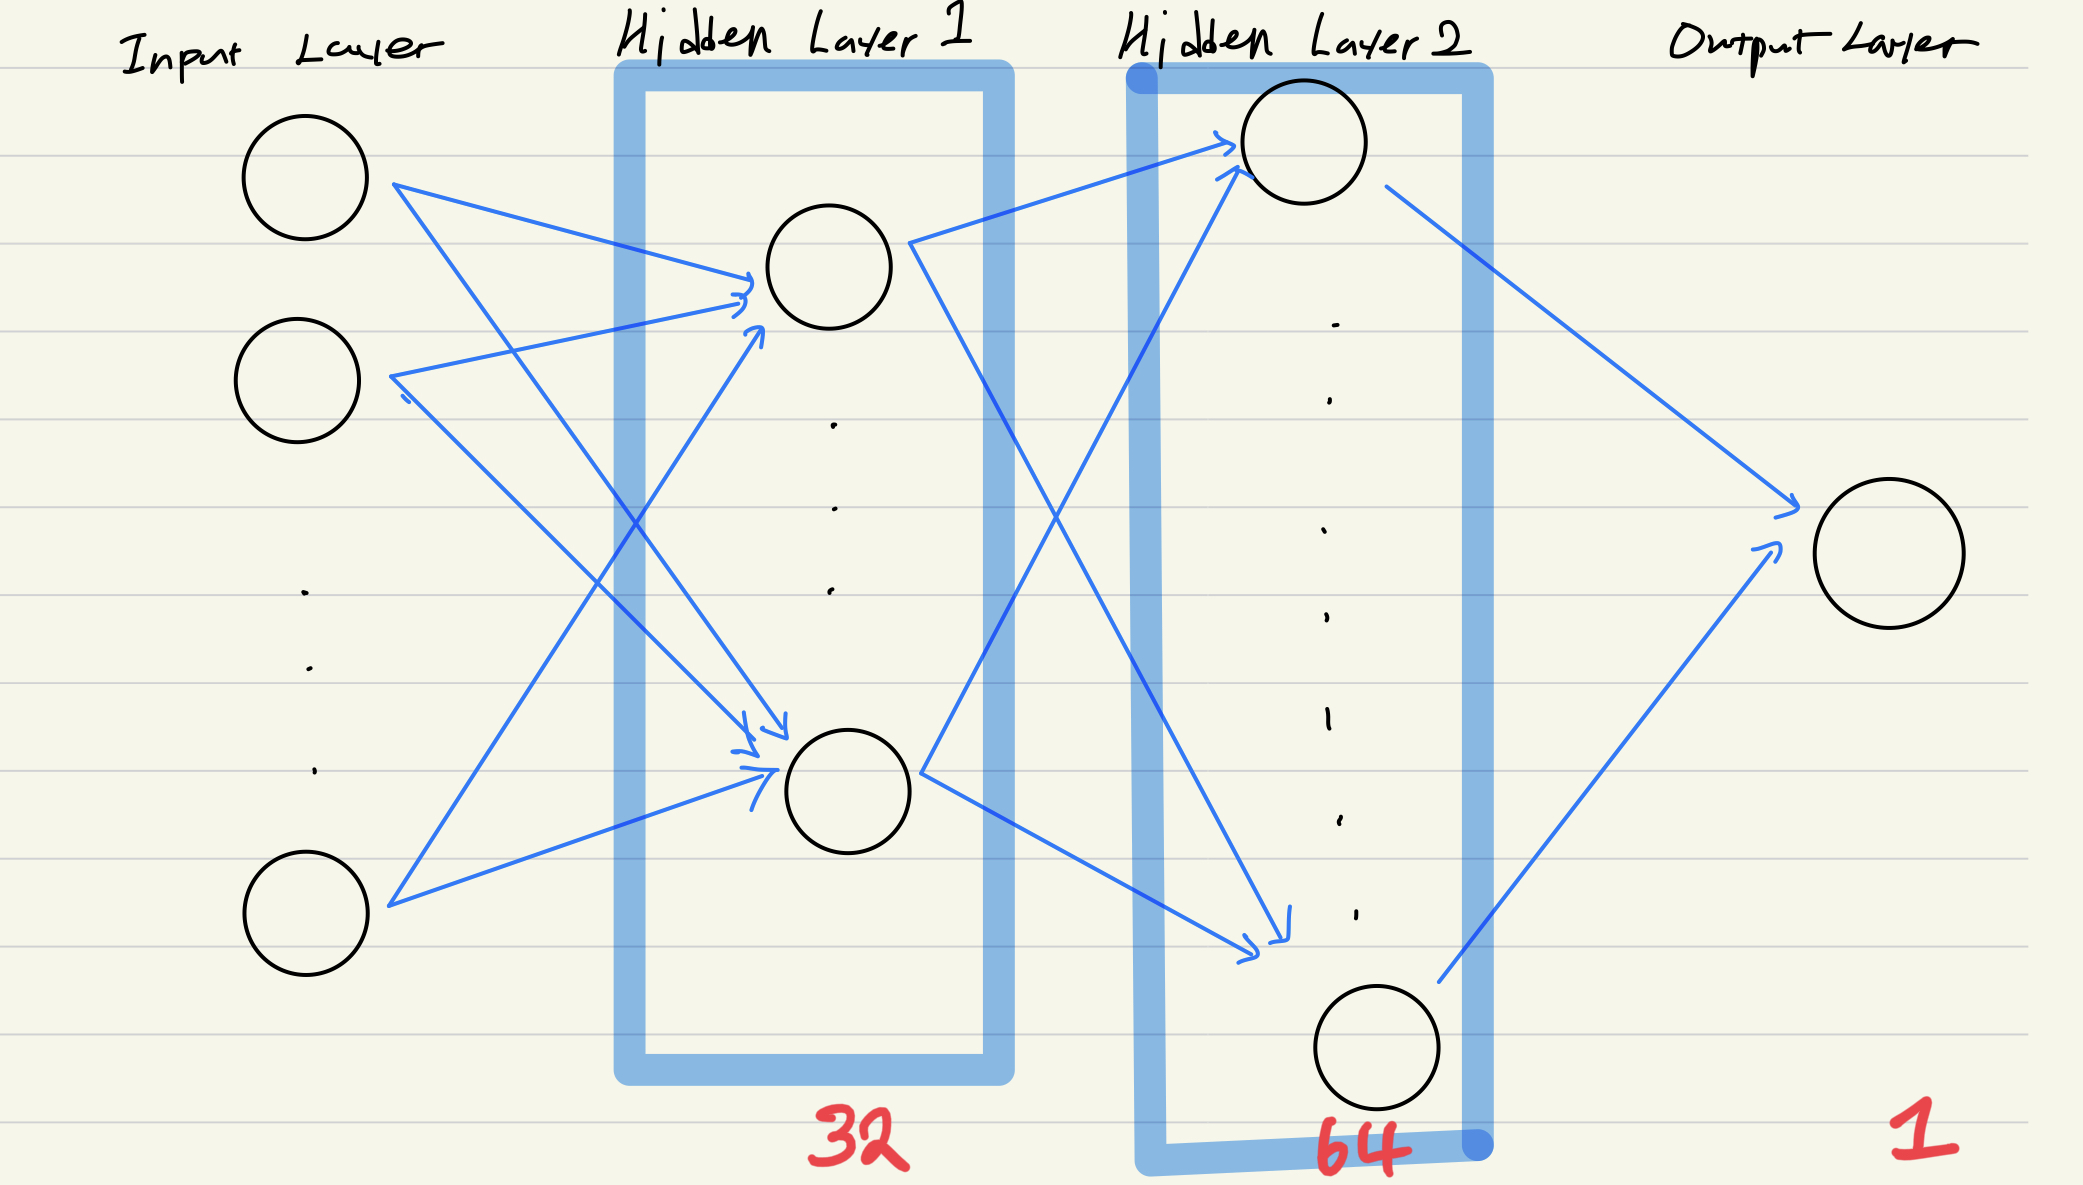 Input Layer
Hidden Layer 1
Hidden Layer 2
Output Layer
32
64
1